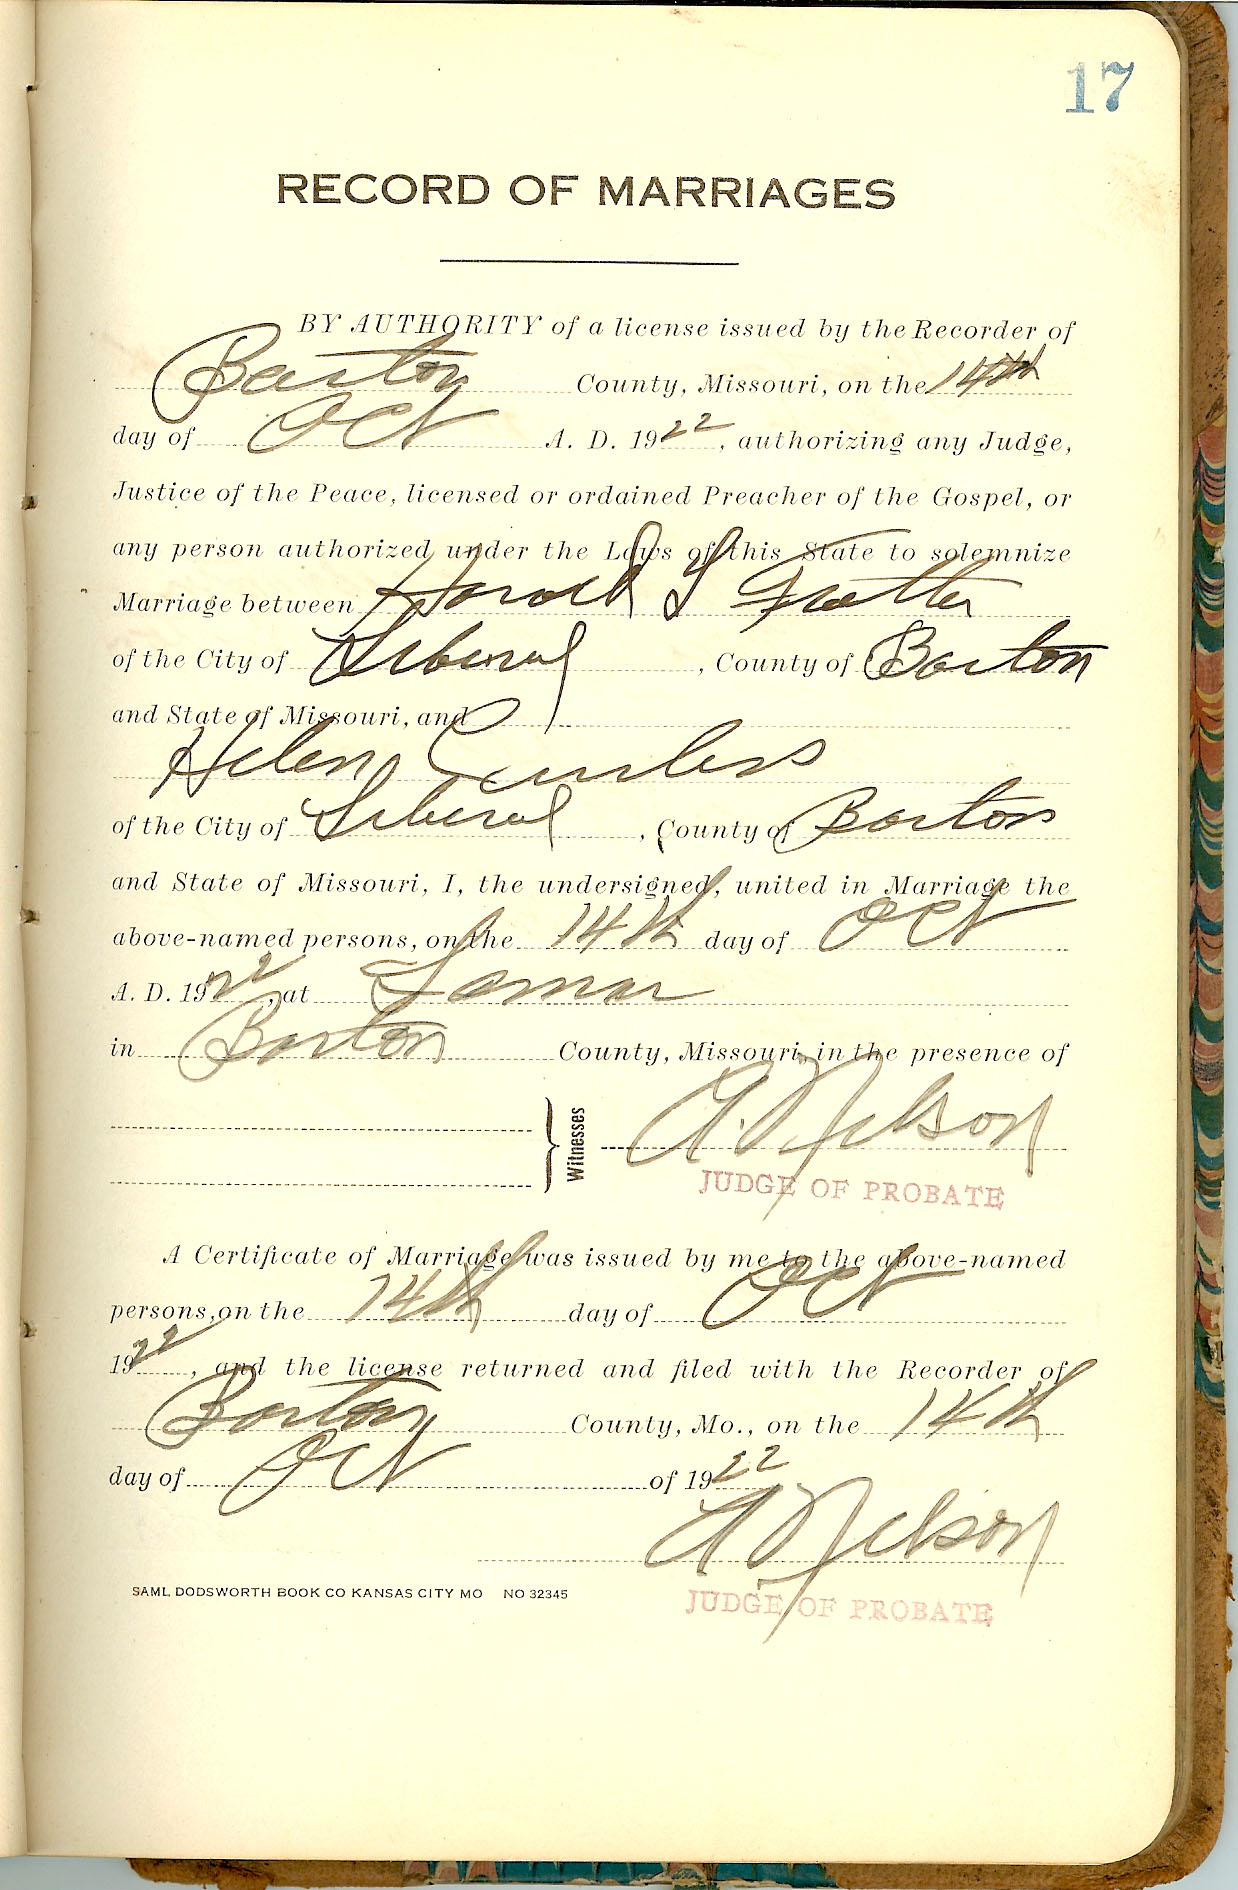 17
RECORD OF MARRIAGES
BY AUTHORITY of a license issued by the Recorder of
Barton County, Missouri, on the 14th
day of Oct A. D. 1922, authorizing any Judge,
Justice of the Peace, licensed or ordained Preacher of the Gospel, or
any person authorized under the Laws of this State to solemnize
Marriage between Harold S
of the City of Liberal, County of Barton
and State of Missouri, and
Helen Curless
of the City of Liberal, County of Barton
and State of Missouri, I, the undersigned, united in Marriage the
above-named persons, on the 14th day of Oct
A. D. 1922, at Lamar
in Barton County, Missouri, in the presence of
Witnesses A. Nelson
JUDGE OF PROBATE
A Certificate of Marriage was issued by me to the above-named
persons, on the 14th day of Oct
1922, and the license returned and filed with the Recorder of
Barton County, Mo., on the 14th
day of Oct of 1922
A Nelson
SAML DODSWORTH BOOK CO KANSAS CITY MO NO 32345
JUDGE OF PROBATE